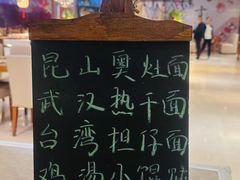 昆山奥灶面
武汉热干面
台湾担仔面
鸡汤小馄饨